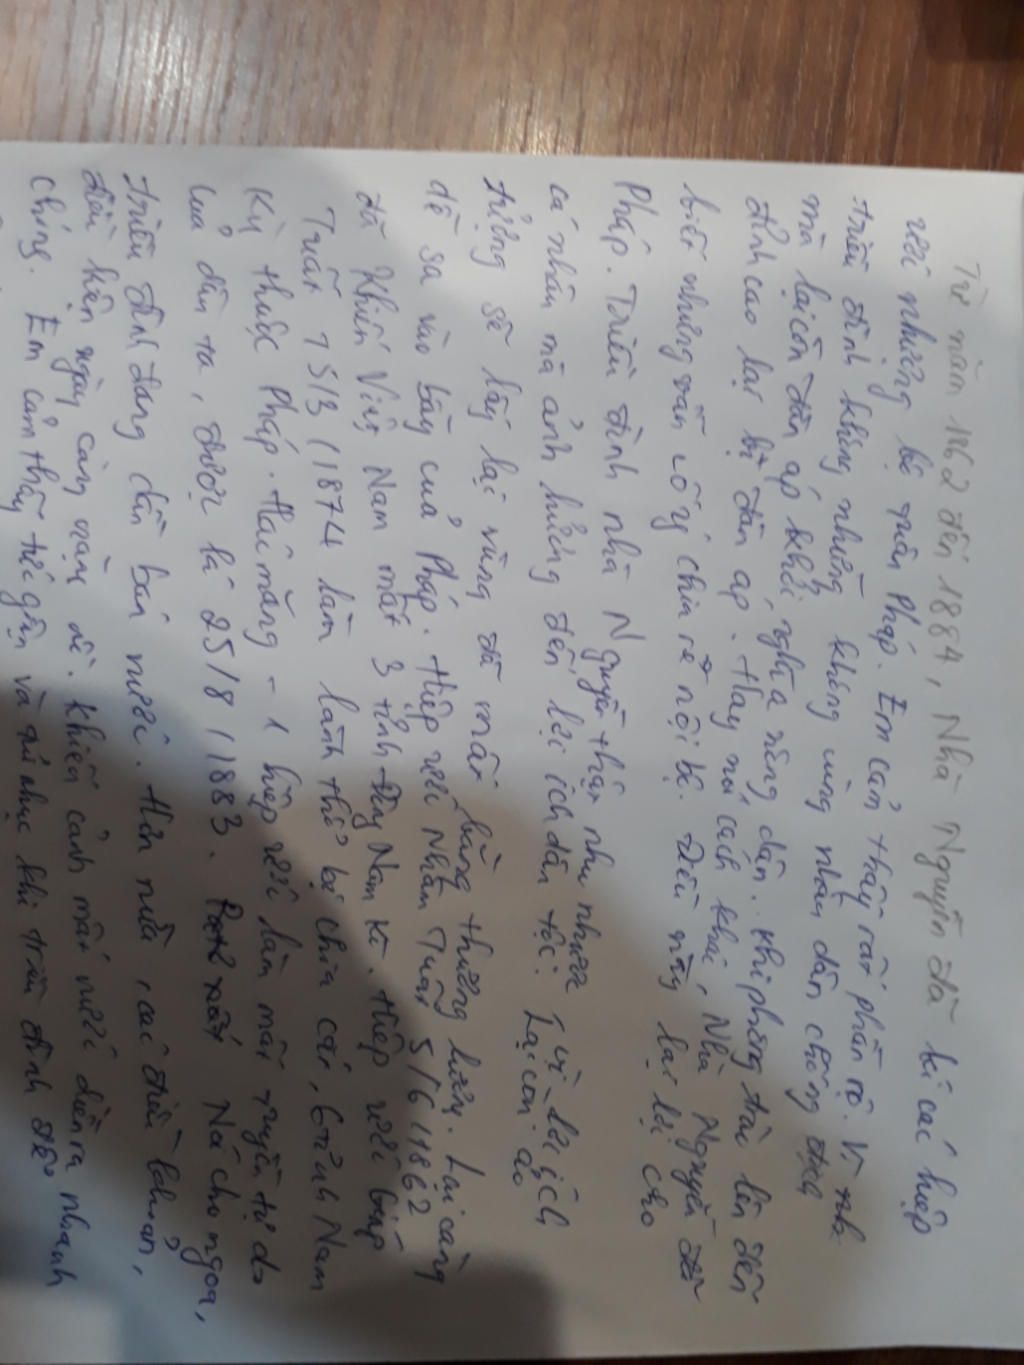 Từ năm 1862 đến 1884, Nhà Nguyễn đã kí các hiệp
ước nhượng bộ quân Pháp. Em cảm thấy rất phẫn nộ. Vì nhà
triều đình không những không cùng nhân dân chống địch
mà lại còn đàn áp khởi nghĩa nông dân. khi phong trào lên đến
đỉnh cao lại bị đàn áp. Hay nói cách khác, Nhà Nguyễn đã
biết nhưng vẫn cố ý chia rẽ nội bộ. Điều này lại lợi cho
Pháp. Triều đình nhà Nguyễn thật nhu nhược. Vì lợi ích
cá nhân mà ảnh hưởng đến lợi ích dân tộc. Lại còn ảo
tưởng sẽ lấy lại vùng đã mất bằng thương lượng. Lại càng
dễ sa vào bẫy của Pháp. Hiệp ước Nhâm Tuất 5/6/1862
đã khiến Việt Nam mất 3 tỉnh Nam Kì. Hiệp ước Giáp
Tuất 15/3/1874 làm lãnh thổ bị chia cắt, 6 tỉnh Nam
Kỳ thuộc Pháp. Hác măng - 1 hiệp ước làm mất quyền tự do
của dân ta, được kí 25/8/1883. ngoa,
triều đình đang dần bán nước. Hơn nữa, các điều khoản,
điều kiện ngày càng nặng nề. khiến cảnh mất nước diễn ra nhanh
chóng. Em cảm thấy tức giận và khi triều đình